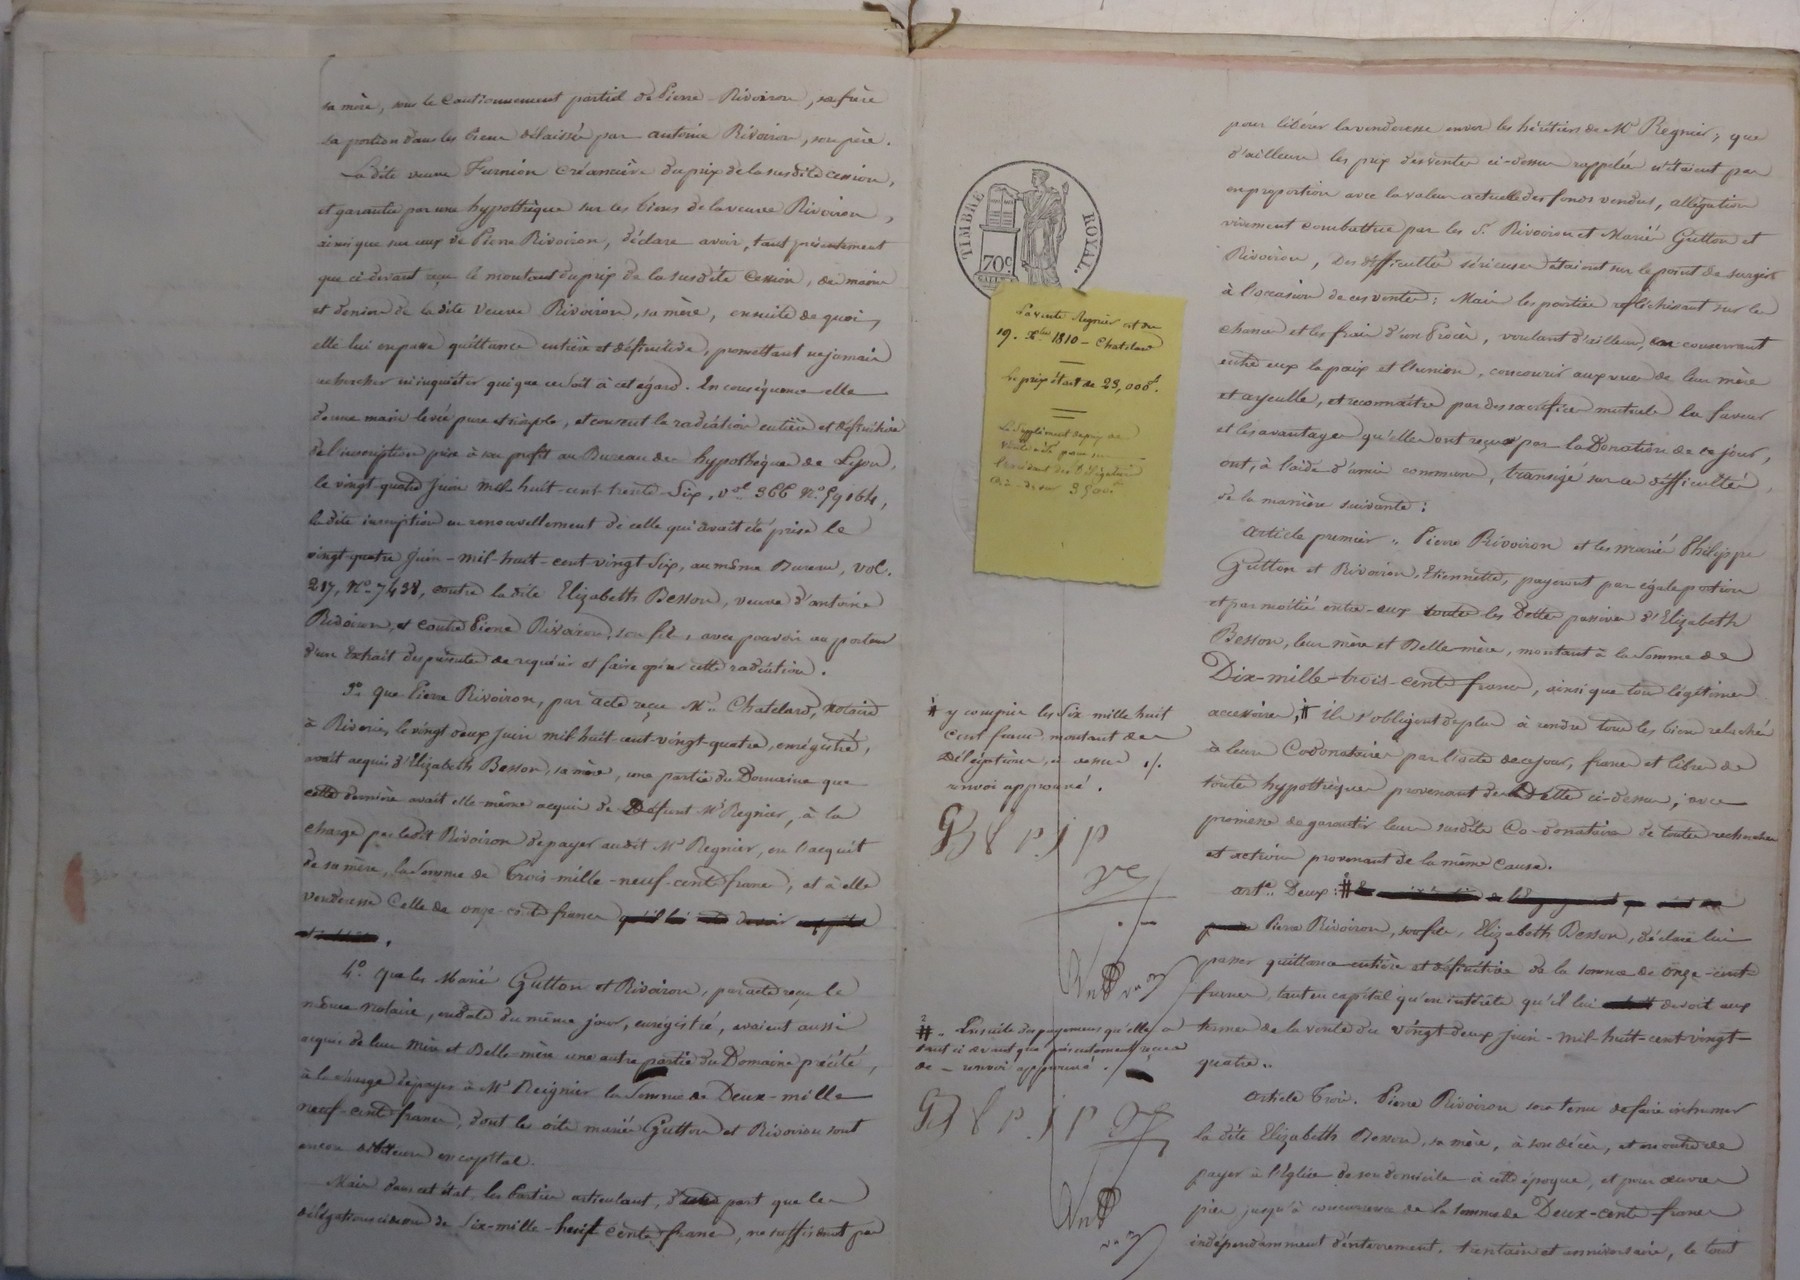 sa mère, sous le Cautionnement partiel de Pierre Rivoiron, sa frère
sa portion dans les biens délaissés par antoine Rivoiron, son père.
La dite veuve Furnion Créancière du prix de la susdite cession,
et garantie par une hypothèque sur les biens de la veuve Rivoiron,
ainsi que sur ceux de Pierre Rivoiron, déclare avoir, tant présentement
que ci-devant reçu le montant du prix de la susdite Cession, des mains
et deniers de la dite Veuve Rivoiron, sa mère, ensuite de quoi,
elle lui en passe quittance entière et définitive, promettant ne jamais
rechercher ni inquiéter qui que ce soit à cet égard. En conséquence elle
donne main levée pure et simple, et consent la radiation entière et définitive
de l'inscription prise à son profit au Bureau des hypothèques de Lyon,
le vingt-quatre Juin mil-huit-cent-trente-Six, vol. 366 N.o 59164,
la dite inscription en renouvellement de celle qui avait été prise le
vingt-quatre Juin-mil-huit-cent-vingt-Six, au même Bureau, vol.
217, N.o 7438, contre la dite Elizabeth Besson, veuve d'antoine
Rivoiron, et contre Pierre Rivoiron, son fils, avec pouvoir au porteur
d'un Extrait des présentes de requérir et faire opérer cette radiation.
3.o que Pierre Rivoiron, par acte reçu M.e Chatelard, Notaire
à Riverie, le vingt deux juin mil huit cent-vingt-quatre, enrégistré,
avait acquis d'Elizabeth Besson, sa mère, une partie du Domaine que
cette dernière avait elle-même acquis de Défunt M.r Regnier, à la
charge par ledit Rivoiron de payer audit M.r Regnier, en l'acquit
de sa mère, la Somme de Trois-mille-neuf-cents francs, et à elle
venderesse Celle de onze-cents francs qu'il lui
.
4.o que les Mariés Gutton et Rivoiron, par acte reçu le
même notaire, en date du même jour, enrégistré, avaient aussi
acquis de leur Mère et Belle-mère une autre partie du Domaine précité,
à la charge de payer à M.r Reignier la Somme de Deux-mille
neuf-cents francs, dont les dits mariés Gutton et Rivoiron sont
encore débiteurs en capital.
Mais dans cet état, les Parties articulant, d'une part que les
délégations ci-dessus de Six-mille-huit cents francs, ne suffisent pas
TIMBRE ROYAL.
70c
La vente Regnier est du
19. Xbre 1810 - Chatelard
Le prix étant de 23,000f.
Le Supplément de prix de
ci-dessus
y compris les Six-mille huit
Cent francs, montant des
Délégations, ci dessus ./.
renvoi approuvé.
P. J P
2 .. Ensuite du payement qu'elle a
tant ci devant que présentement reçu
de - renvoi approuvé ./.
P. J P
pour libérer la venderesse envers les héritiers de M.r Regnier, que
d'ailleurs les prix des ventes ci-dessus rappelées n'étaient pas
en proportion avec la valeur actuelle des fonds vendus, allégation
vivement combattue par les S.rs Rivoiron et Mariés Gutton et
Rivoiron, Des difficultés sérieuses étaient sur le point de surgir
à l'occasion de ces ventes; Mais les parties réfléchissant sur les
chances et les frais d'un Procès, voulant d'ailleurs, en conservant
entre eux la paix et l'union, concourir aux vues de leur mère
et ayeulle, et reconnaître par des sacrifices mutuels les faveurs
et les avantages qu'elles ont reçus par la Donation de ce jour,
ont, à l'aide d'amis communs, transigé sur ces difficultés,
de la manière suivante:
Article premier .. Pierre Rivoiron et les mariés Philippe
Gutton et Rivoiron, Etiennette, payeront par égale portion
et par moitié entre-eux toutes les Dettes passives d'Elizabeth
Besson, leur mère et Belle-mère, montant à la Somme de
Dix-mille-trois-cents francs, ainsi que tous légitimes
accessoires, Ils s'obligent de plus à rendre tous les biens relâchés
à leurs Codonataires par l'acte de ce jour, francs et libres de
toutes hypothèques provenant des Dettes ci-dessus, avec
promesse de garantir leurs susdits Co-donataires de toutes recherches
et actions provenant de la même Cause.
art.e Deux:
Pierre Rivoiron, son fils, Elizabeth Besson, déclare lui
passer quittance entière et définitive de la somme de Onze-cents
francs, tant en capital qu'en intérêts qu'il lui devait aux
termes de la vente du vingt-deux juin-mil-huit-cent-vingt-
quatre..
Article Trois. Pierre Rivoiron sera tenu de faire inhumer
la dite Elizabeth Besson, sa mère, à son décès, et en outre de
payer à l'église de son domicile à cette époque, et pour œuvres
pies jusqu'à concurrence de la somme de Deux-cents francs
indépendamment d'enterrement, trentain et anniversaire, le tout